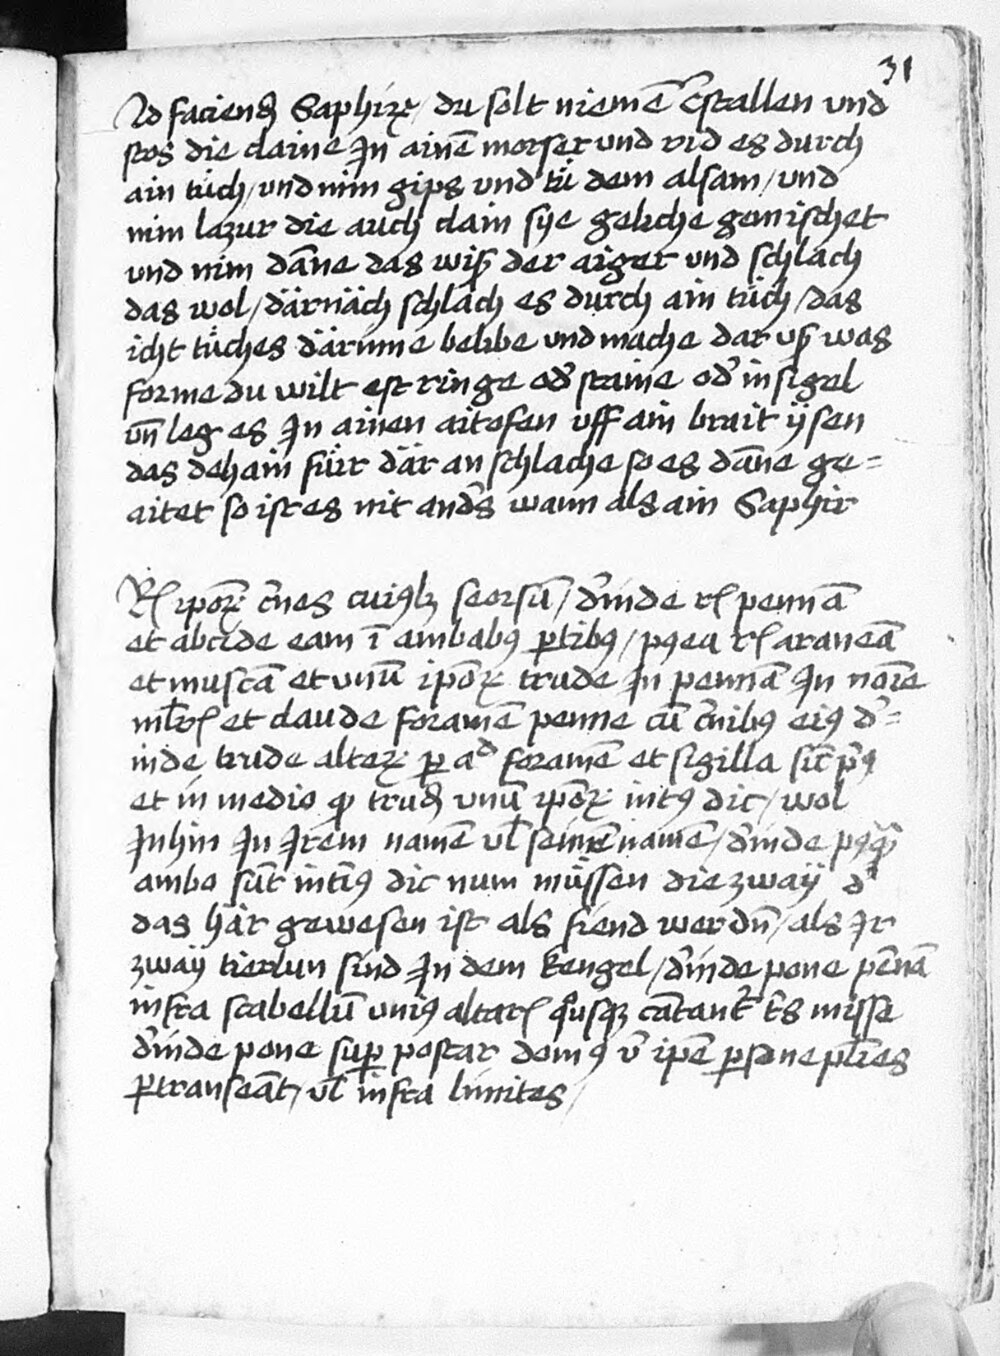 31
Ad faciend Saphirz / du solt niemē Cͥstallen und
stos die claine In ainē morser und rid es durch
ain tüch / und nim gips und tü dem alsam / und
nim lazur die auch clain sye geliche gemischet
und nim dāne das wiß der aiger und schlach
das wol / därnäch schläch es durch ain tüch / das
icht tüches därinne belibe und mache dar uß was
forme du wilt est ringe od̾ staine od̾ insigel
un̄ leg es In ainen aitofen uff ain brait ÿsen
das dehain für där an schlache so es dāne ge=
aitet so ist es nit and̾s wann als ain Saphir
Rͥ ipoꝝ c̾nes cuiꝰlꝫ seorsū / d̾inde rͥ pennā
et abcide eam ī ambabꝰ ꝑtibꝰ / pꝰea rͥ araneā
et muscā et unū ipōꝝ trude In pennā In noīe
et claude foramē penne cū c̾nibꝰ eiꝰ d̾=
inde trude alteꝝ ꝑ ad foramē et sigilla sic̄ pͥꝰ
et in medio trud unū ipōꝝ intꝰ dic / wol
Inhin In Irem namē ul̄ seinē namē / d̾inde
ambo sūt intꝰ dic num müssen die zwaÿ d̾
das här gewesen ist als fiend werdn̄ / als Ir
zwaÿ tierlun sind In dem kengel / d̾inde pone pēnā
infra scabellū uniꝰ altarͥ qͦusqꝫ cātant̾ misse
d̾inde pone suꝑ postar domꝰ ipē ꝑsone
ꝑtranseāt / ul̄ infra limites /